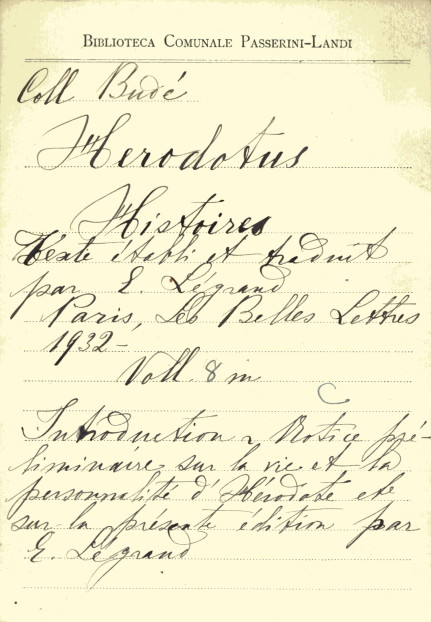 BIBLIOTECA COMUNALE PASSERINI-LANDI
Coll Budé
Herodotus
Histoires
Téxte établi et traduit
par E. Légrand
Paris, Les Belles Lettres
1932-
Voll. 8 in
Introduction Notice pré-
liminaire sur la vie et la
personnalité d'Hérodote et
sur la présente édition par
E. Légrand